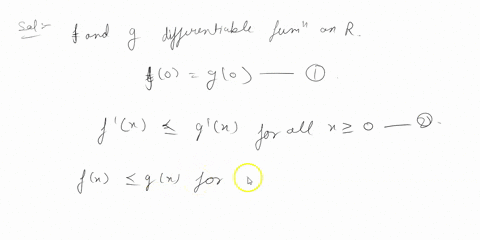 Sol:- f and g differentiable funⁿ on R.
f(0) = g(0) —— ①
f'(x) ≤ g'(x) for all x ≥ 0 —— ②.
f(x) ≤ g(x) for